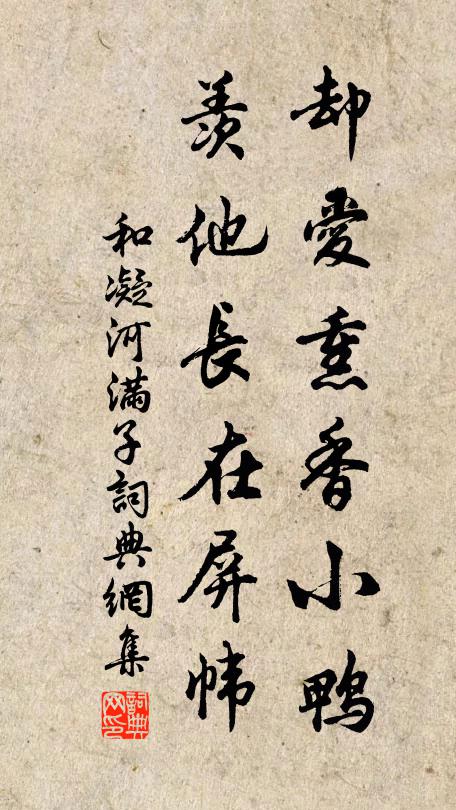 却愛熏香小鴨
羨他長在屏幃
和凝河滿子詞典網集
詞典网印